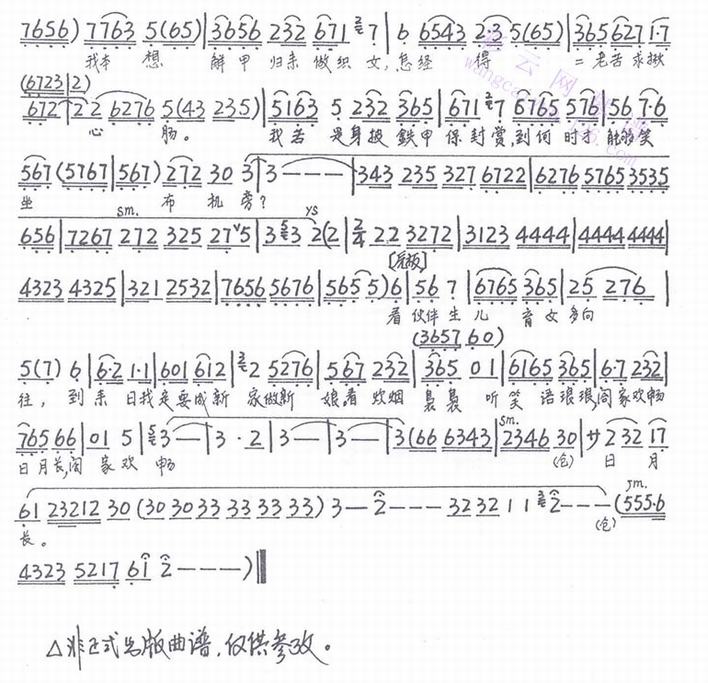 7656) 7763 5(65) | 3656 232 671 7 | 6 6543 2·3 5(65) | 365 627 1·7
我本 想 解甲 归来 做织 女, 怎经 得 二老苦求揪
(6723 | 2)
672 | 2 2 6276 5(43 235) | 5163 5 232 365 | 671 7 6765 576 | 56 7·6
心 肠。 我若 是身披 鉄甲 保封赏, 到何 时才 能够笑
567 (5767 | 567) 272 30 3 | 3 — — — | 343 235 327 6722 | 6276 5765 3535
坐 布 机旁?
sm. ys
656 | 7267 272 325 27 5 | 3 3 2(2 | 2/4 22 3272 | 3123 4444 | 4444 4444 |
4323 4325 | 321 2532 | 7656 5676 | 565 5) 6 | 56 7 | 6765 365 | 25 276 |
看 伙伴 生 儿 育女 多向
(3657 60)
5(7) 6 | 6·2 1·1 | 601 612 | 2 5276 | 567 232 | 365 01 | 6165 365 | 6·7 232 |
往, 到来 日我是要成新 家做新 娘, 看 炊烟 袅袅 听笑 语琅琅, 阖家欢畅
sm.
765 66 | 01 5 | 3 — | 3 · 2 | 3 — | 3 — | 3(66 6343 | 2346 30 | サ 2 32 17
日月长, 阖 家欢 畅 (仓) 日 月
sm.
61 23212 30 (30 30 33 33 33 33) 3 — 2 — — — 32 32 1 1 2 — — — (555·6
长。 (仓)
4323 5217 61 2 — — — )
△非正式出版曲谱,仅供参考。